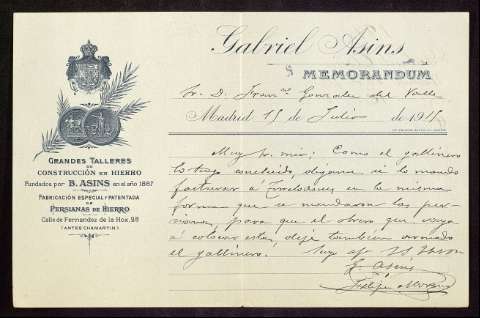 Gabriel Asins
MEMORANDUM
Sr. D. Franco Gonzalez del Valle
Madrid 15 de Julio de 1915
GRANDES TALLERES
DE
CONSTRUCCIÓN EN HIERRO
Fundados por B. ASINS en el año 1867
FABRICACIÓN ESPECIAL Y PATENTADA
DE
PERSIANAS DE HIERRO
Calle de Fernandez de la Hoz, 28
(ANTES CHAMARTIN)
Muy Sr. mio: Como el gallinero
lo tengo concluido, digame si lo mando
facturar á en la misma
forma que se mandaron las per-
sianas, para que el obrero que vaya
á colocar estas, deje tambien armado
el gallinero. Suyo af
G. Asins
Felipe